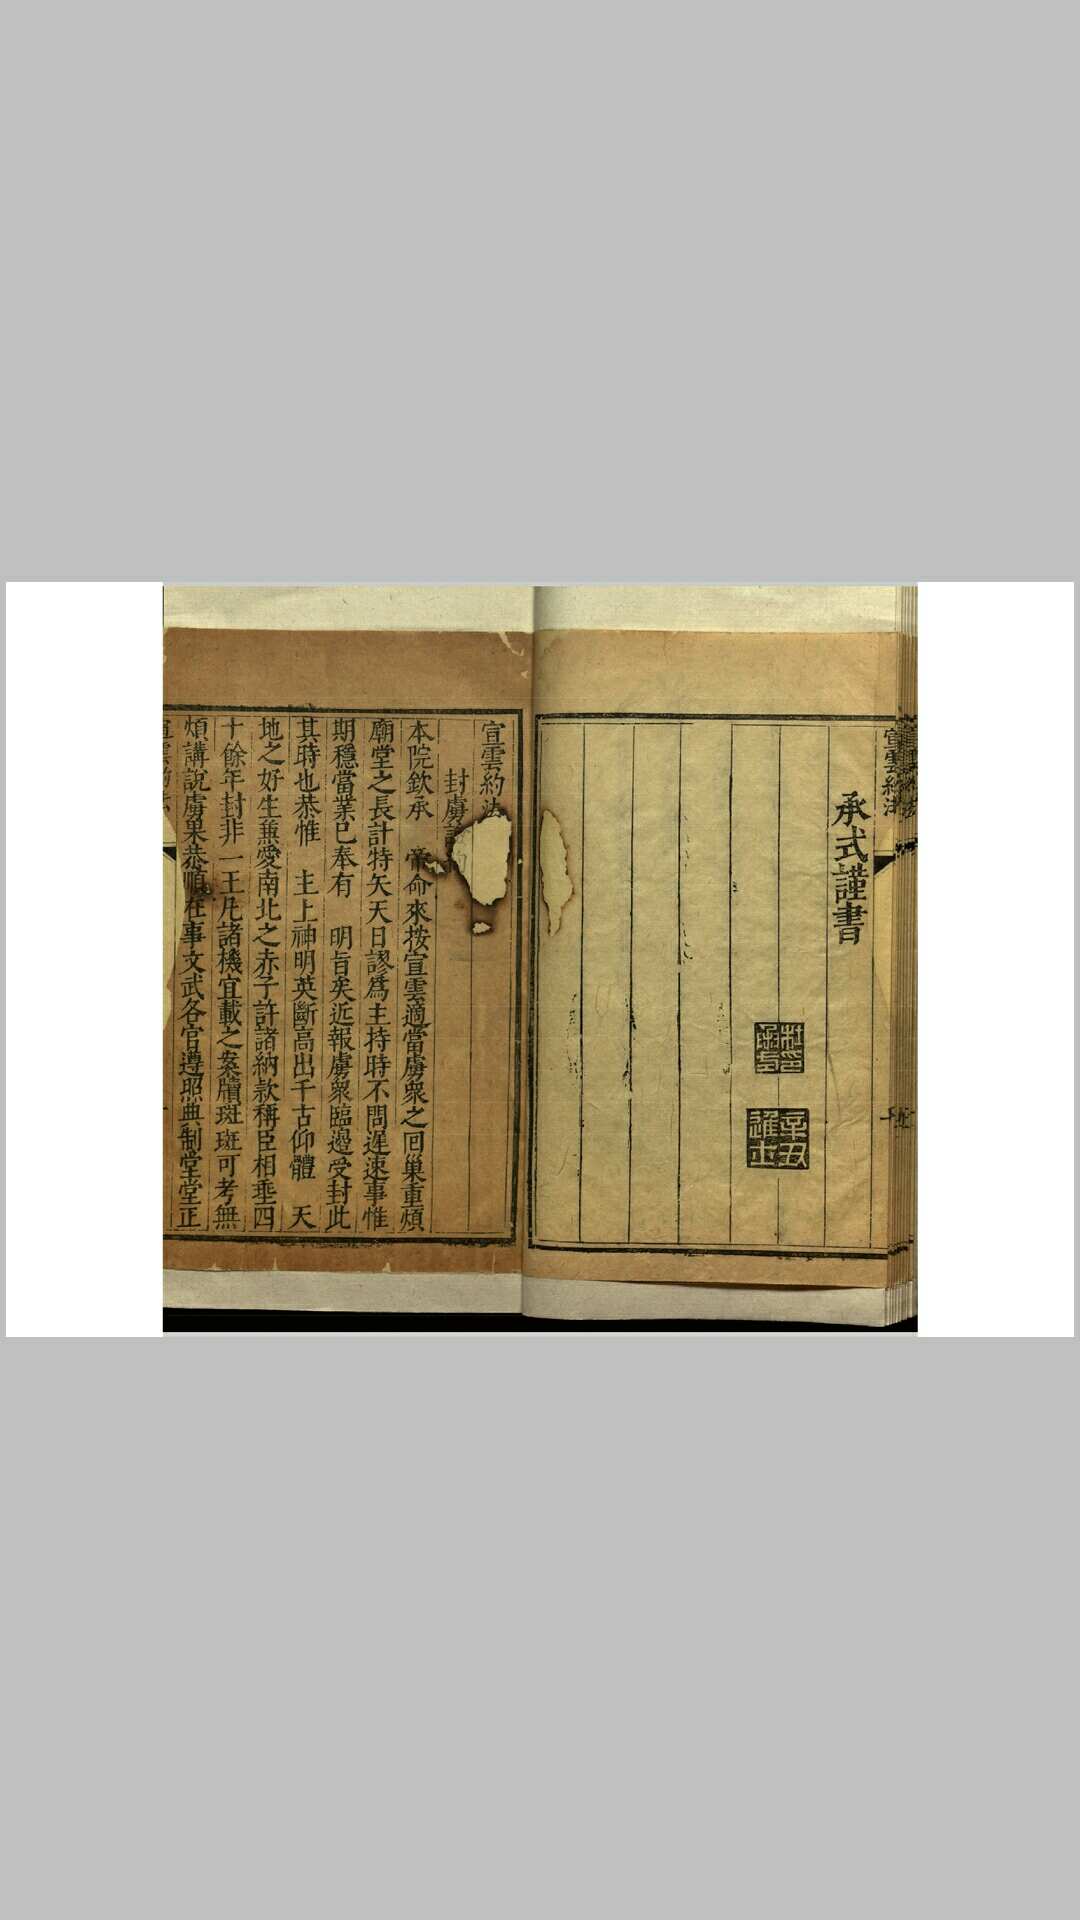 宣雲約法
承式謹書
杜印承式
辛丑進士
宣雲約法
封虜
本院欽承　帝命來按宣雲適當虜衆之回巢重煩
廟堂之長計特矢天日謬爲主持時不問遲速事惟
期穩當業已奉有　明旨矣近報虜衆臨邊受封此
其時也恭惟　主上神明英斷高出千古仰體　天
地之好生兼愛南北之赤子許諸納款稱臣相垂四
十餘年封非一王凡諸機宜載之案牘斑斑可考無
煩講說虜果恭順在事文武各官遵照典制堂堂正